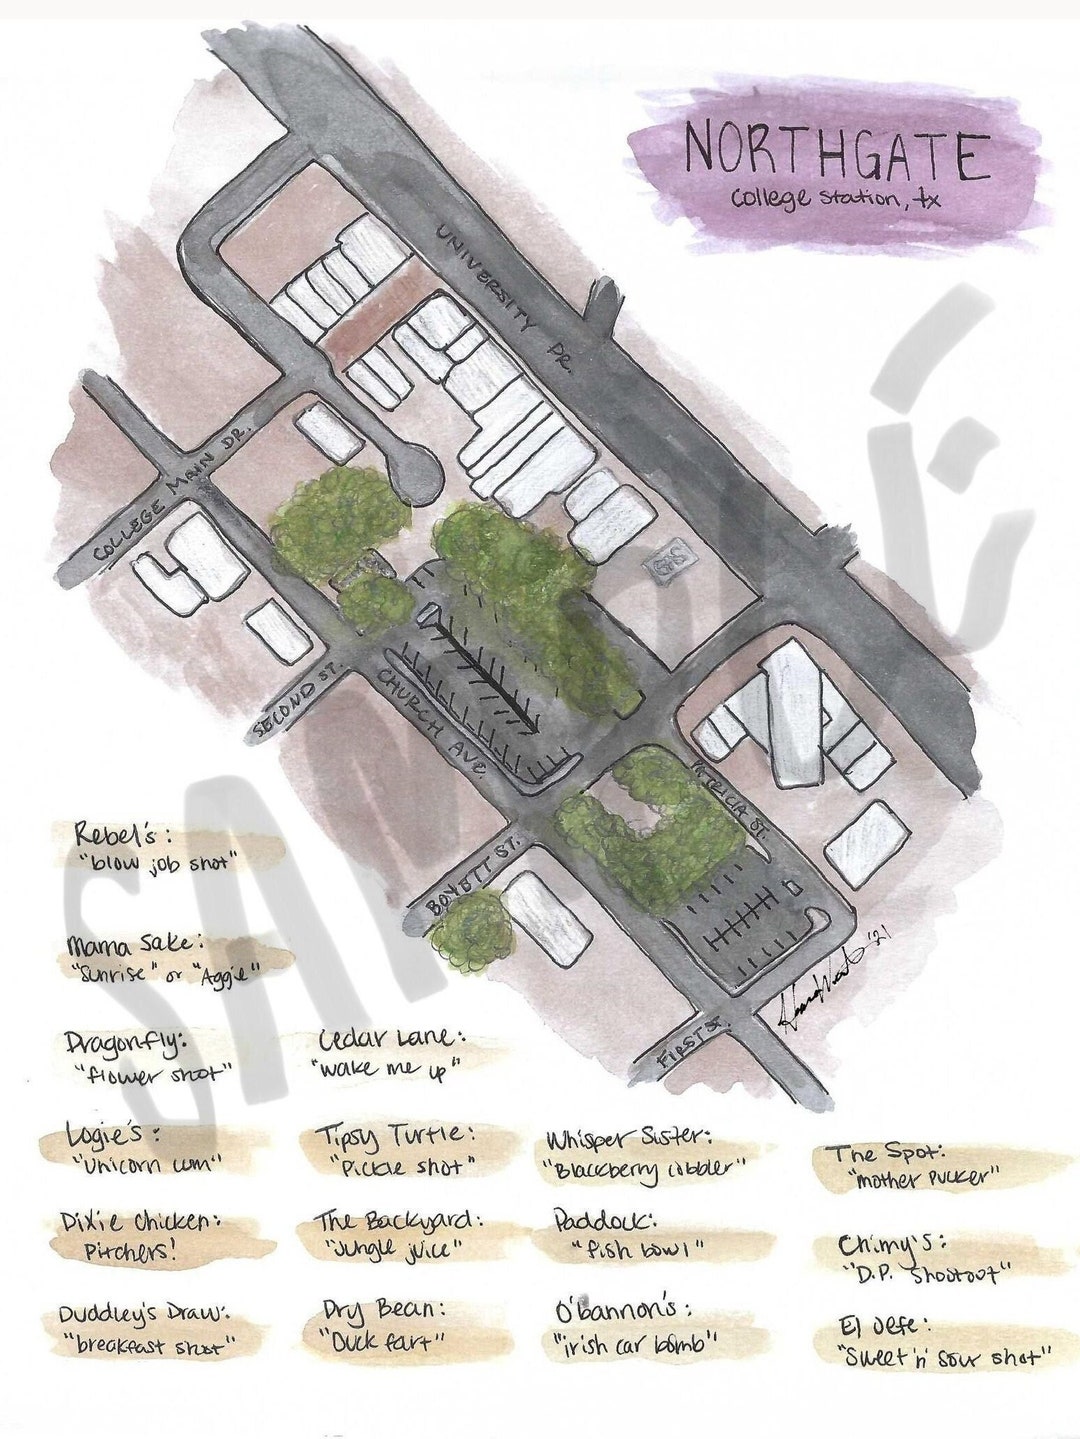 NORTHGATE
College Station, tx
UNIVERSITY DR.
COLLEGE MAIN DR.
SECOND ST.
CHURCH AVE.
GAS
PATRICIA ST.
BOYETT ST.
FIRST ST.
'21
SAMPLE
Rebel's:
"blow job shot"
Mama Sake:
"Sunrise" or "Aggie"
Dragonfly:
"flower shot"
Cedar Lane:
"wake me up"
Logie's:
"Unicorn cum"
Tipsy Turtle:
"Pickle shot"
Whisper Sister:
"Blackberry cobbler"
The Spot:
"mother pucker"
Dixie Chicken:
Pitchers!
The Backyard:
"Jungle juice"
Paddock:
"fish bowl"
Chimy's:
"D.P. Shootout"
Duddley's Draw:
"breakfast shot"
Dry Bean:
"Duck fart"
O'bannon's:
"irish car bomb"
El Jefe:
"Sweet 'n' sour shot"